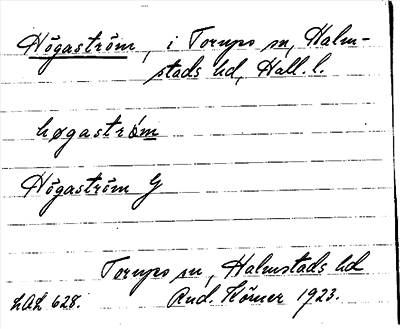 Högaström, i Torups sn, Halm-
stads hd, Hall. l.
høgaström
Högaström G
Torups sn, Halmstads hd
LAL 628. Rud. Körner 1923.